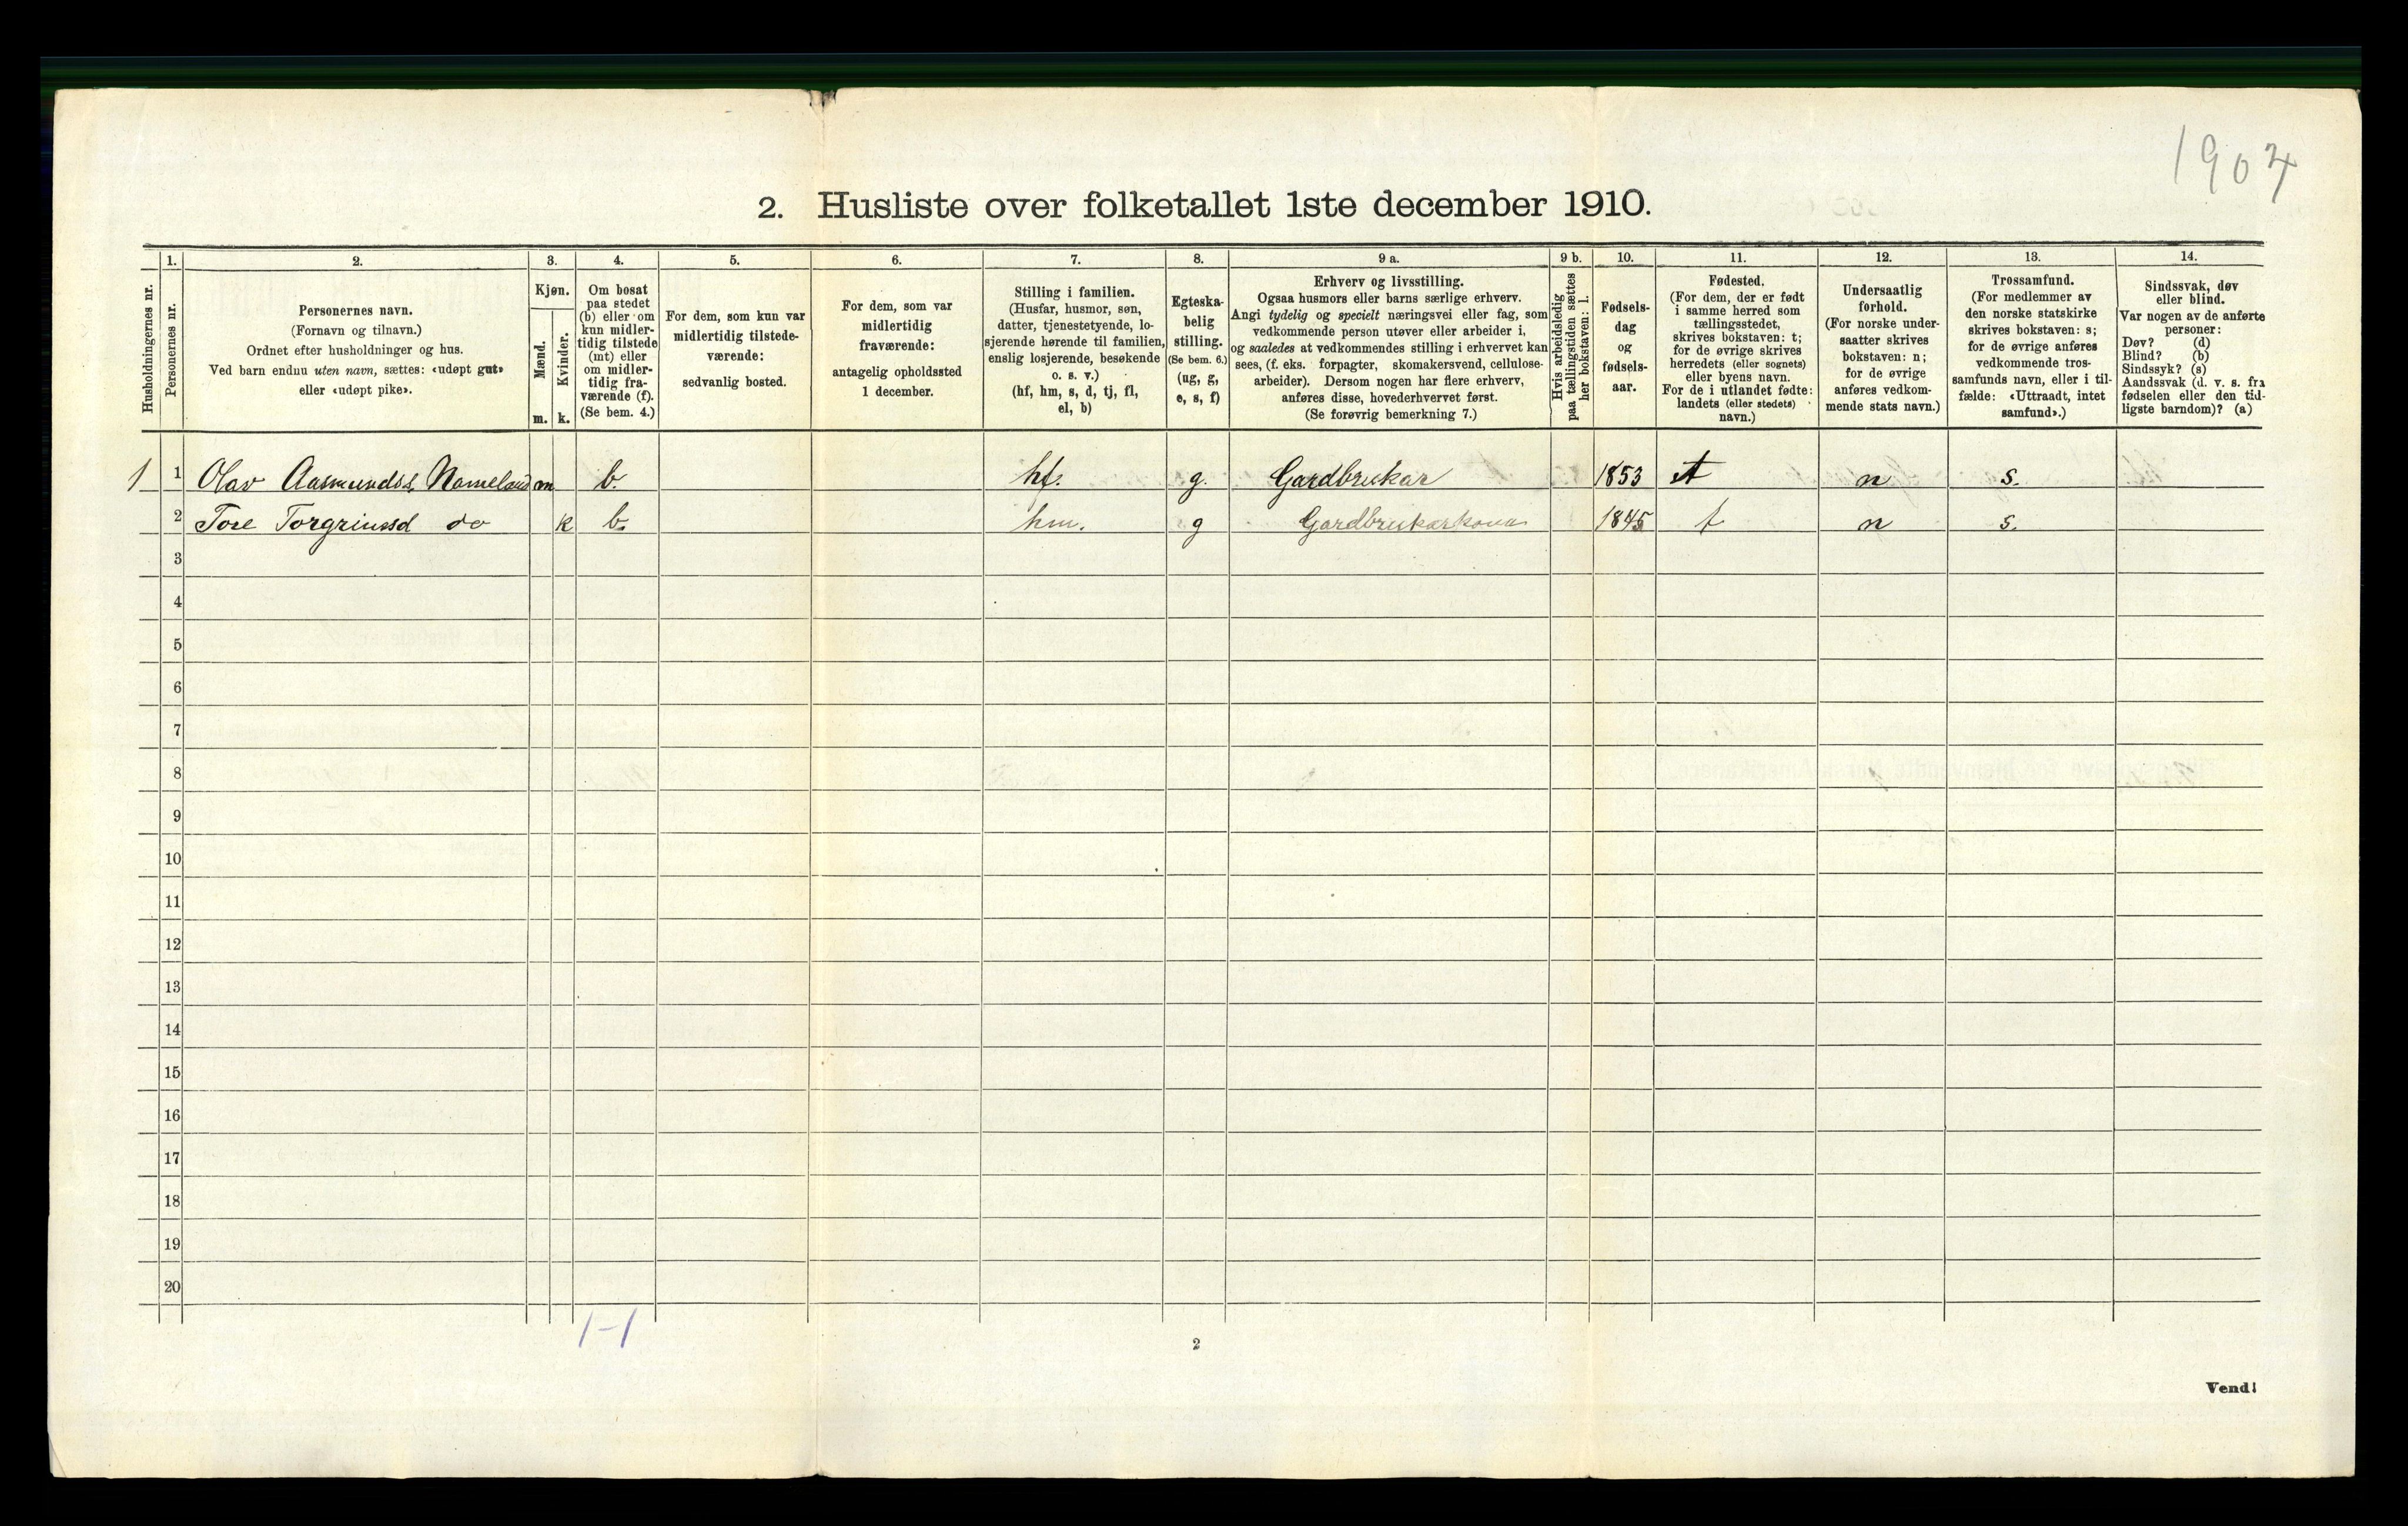 1907
2. Husliste over folketallet 1ste december 1910.
Husholdningernes nr.
1.
Personernes nr.
2.
Personernes navn.
(Fornavn og tilnavn.)
Ordnet efter husholdninger og hus.
Ved barn endnu uten navn, sættes: «udøpt gut»
eller «udøpt pike».
3.
Kjøn.
Mænd.
m.
Kvinder.
k.
4.
Om bosat
paa stedet
(b) eller om
kun midler-
tidig tilstede
(mt) eller
om midler-
tidig fra-
værende (f).
(Se bem. 4.)
5.
For dem, som kun var
midlertidig tilstede-
værende:
sedvanlig bosted.
6.
For dem, som var
midlertidig
fraværende:
antagelig opholdssted
1 december.
7.
Stilling i familien.
(Husfar, husmor, søn,
datter, tjenestetyende, lo-
sjerende hørende til familien,
enslig losjerende, besøkende
o. s. v.)
(hf, hm, s, d, tj, fl,
el, b)
8.
Egteska-
belig
stilling.
(Se bem. 6.)
(ug, g,
e, s, f)
9 a.
Erhverv og livsstilling.
Ogsaa husmors eller barns særlige erhverv.
Angi tydelig og specielt næringsvei eller fag, som
vedkommende person utøver eller arbeider i,
og saaledes at vedkommendes stilling i erhvervet kan
sees, (f. eks. forpagter, skomakersvend, cellulose-
arbeider). Dersom nogen har flere erhverv,
anføres disse, hovederhvervet først.
(Se forøvrig bemerkning 7.)
9 b.
Hvis arbeidsledig
paa tællingstiden sættes
her bokstaven: l.
10.
Fødsels-
dag
og
fødsels-
aar.
11.
Fødested.
(For dem, der er født
i samme herred som
tællingsstedet,
skrives bokstaven: t;
for de øvrige skrives
herredets (eller sognets)
eller byens navn.
For de i utlandet fødte:
landets (eller stedets)
navn.)
12.
Undersaatlig
forhold.
(For norske under-
saatter skrives
bokstaven: n;
for de øvrige
anføres vedkom-
mende stats navn.)
13.
Trossamfund.
(For medlemmer av
den norske statskirke
skrives bokstaven: s;
for de øvrige anføres
vedkommende tros-
samfunds navn, eller i til-
fælde: «Uttraadt, intet
samfund».)
14.
Sindssvak, døv
eller blind.
Var nogen av de anførte
personer:
Døv? (d)
Blind? (b)
Sindssyk? (s)
Aandssvak (d. v. s. fra
fødselen eller den tid-
ligste barndom)? (a)
1 1 Olav Aasmundss. Nomeland m b. hf. g. Gardbrukar 1853 t n s.
2 Tore Torgrimsd do k b. hm. g Gardbrukarkona 1845 t n s.
3
4
5
6
7
8
9
10
11
12
13
14
15
16
17
18
19
20
1-1
2
Vend!